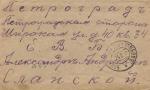 Петроградъ
Петроградская сторона
Широкая ул. д. 10 кв. 34
Е. В. Б.
Александръ Андреевн
Сланской